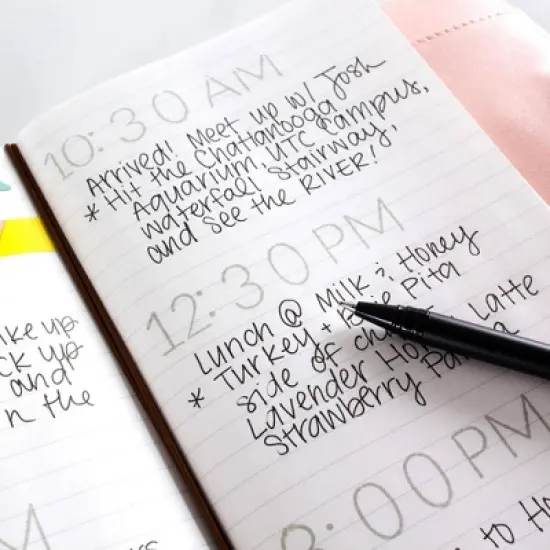 ike up
ck up
and
n the
10:30 AM
Arrived! Meet up w/ Josh
* Hit the Chattanooga
Aquarium, UTC Campus,
waterfall stairway,
and see the RIVER!
12:30 PM
Lunch @ Milk & Honey
* Turkey + Brie Pita
side of
Lavender Latte
Strawberry
:00 PM
to Ho